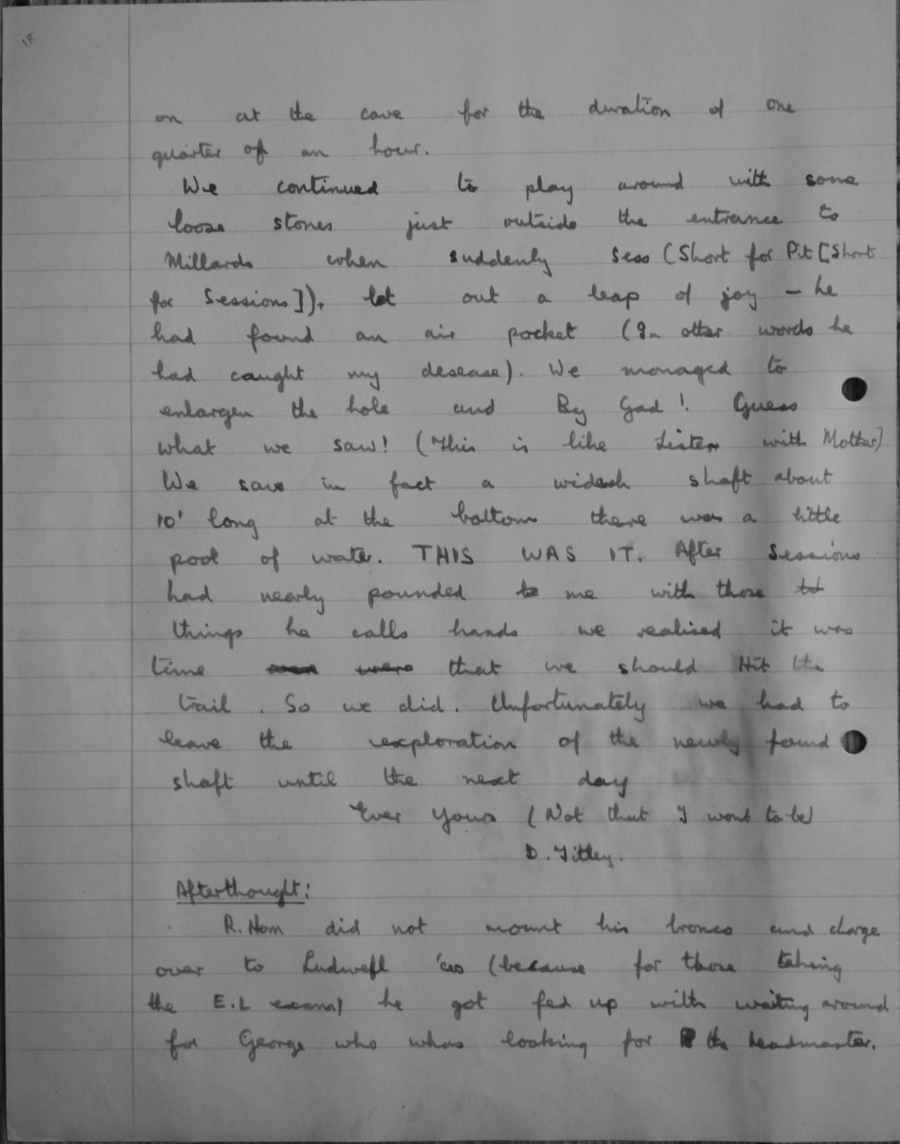 on at the cave for the duration of one
quarter of an hour.
We continued to play around with some
loose stones just outside the entrance to
Millards when suddenly Sess (Short for Pit [Short
for Sessions]), let out a leap of joy - he
had found an air pocket (In other words he
had caught my desease). We managed to
enlargen the hole and By Gad! Guess
what we saw! (This is like Listen with Mother)
We saw in fact a shaft about
10' long at the bottom there was a little
pool of water. THIS WAS IT. After Sessions
had nearly pounded me with those
things he calls hands we realised it was
time that we should Hit the
trail. So we did. Unfortunately we had to
leave the exploration of the newly found
shaft until the next day
Ever Yours (Not that I want to be)
D. Titley.
Afterthought:
R. Hom did not mount his bronco and charge
over to Ludwell 'cos (because for those taking
the E.L exams) he got fed up with waiting around
for George who whas looking for the headmaster.